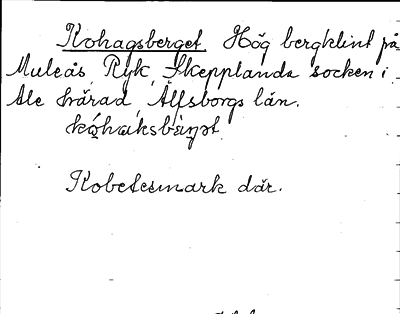 Kohagsberget. Hög bergklint på
Muleås, Ryk, Skepplanda socken i
Ale härad, Älfsborgs län.
kóhaksbä̀rjət
Kobetesmark där.